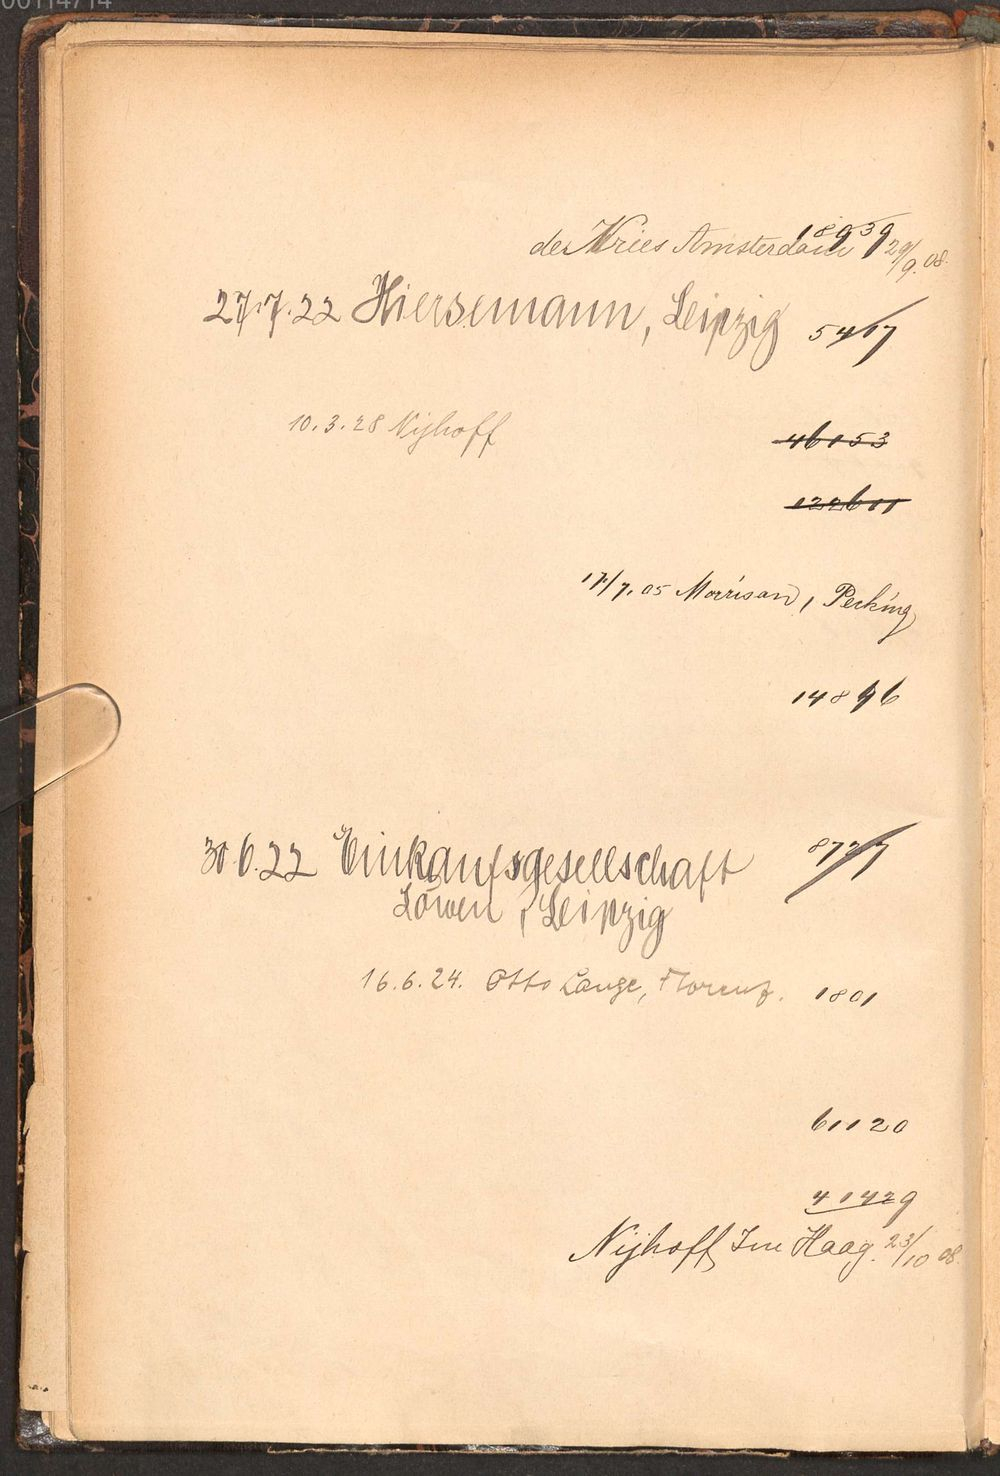 00114714
de Vries Amsterdam 18939 29/9. 08.
27.7.22 Hiersemann, Leipzig 5417
10.3.28 Nijhoff 46153
122611
17/7. 05 Morrison, Pecking
14846
30.6.22 Einkaufsgesellschaft 8727
Löwen, Leipzig
16.6.24. Otto Lange, Florenz. 1801
61120
41429
Nijhoff Im Haag. 23/10 08.